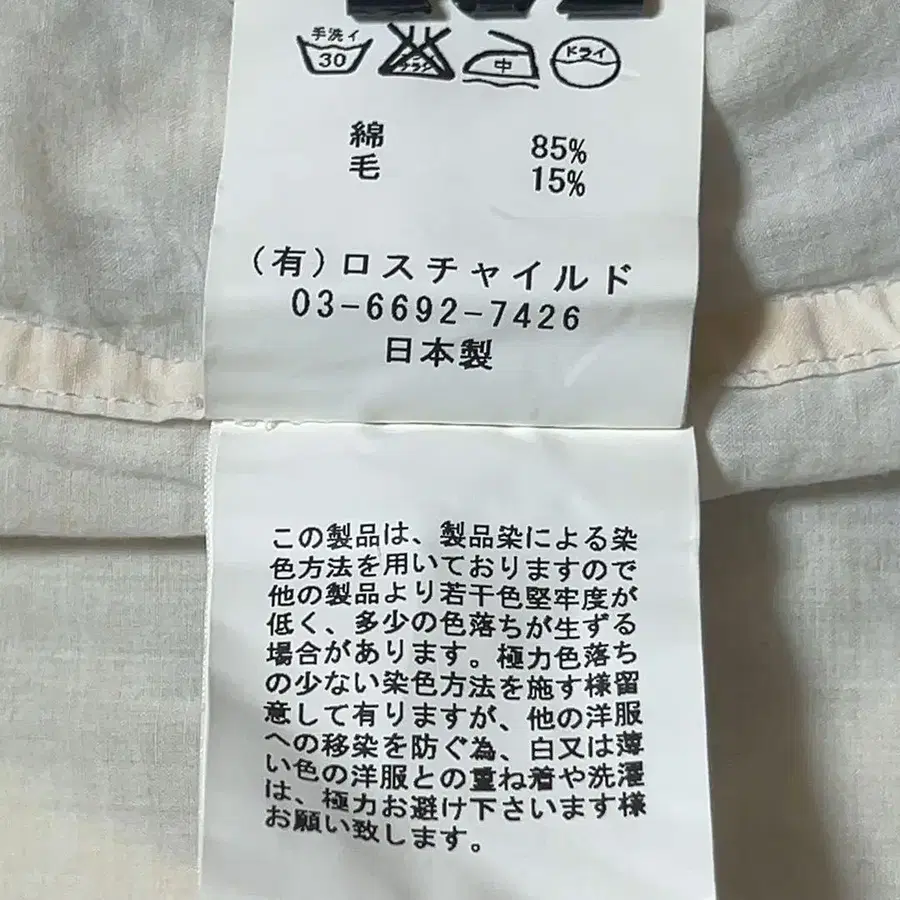 手洗イ ドライ
30 エンソサラシ 中
綿 85%
毛 15%
(有)ロスチャイルド
03-6692-7426
日本製
この製品は、製品染による染
色方法を用いておりますので
他の製品より若干色堅牢度が
低く、多少の色落ちが生ずる
場合があります。極力色落ち
の少ない染色方法を施す様留
意して有りますが、他の洋服
への移染を防ぐ為、白又は薄
い色の洋服との重ね着や洗濯
は、極力お避け下さいます様
お願い致します。